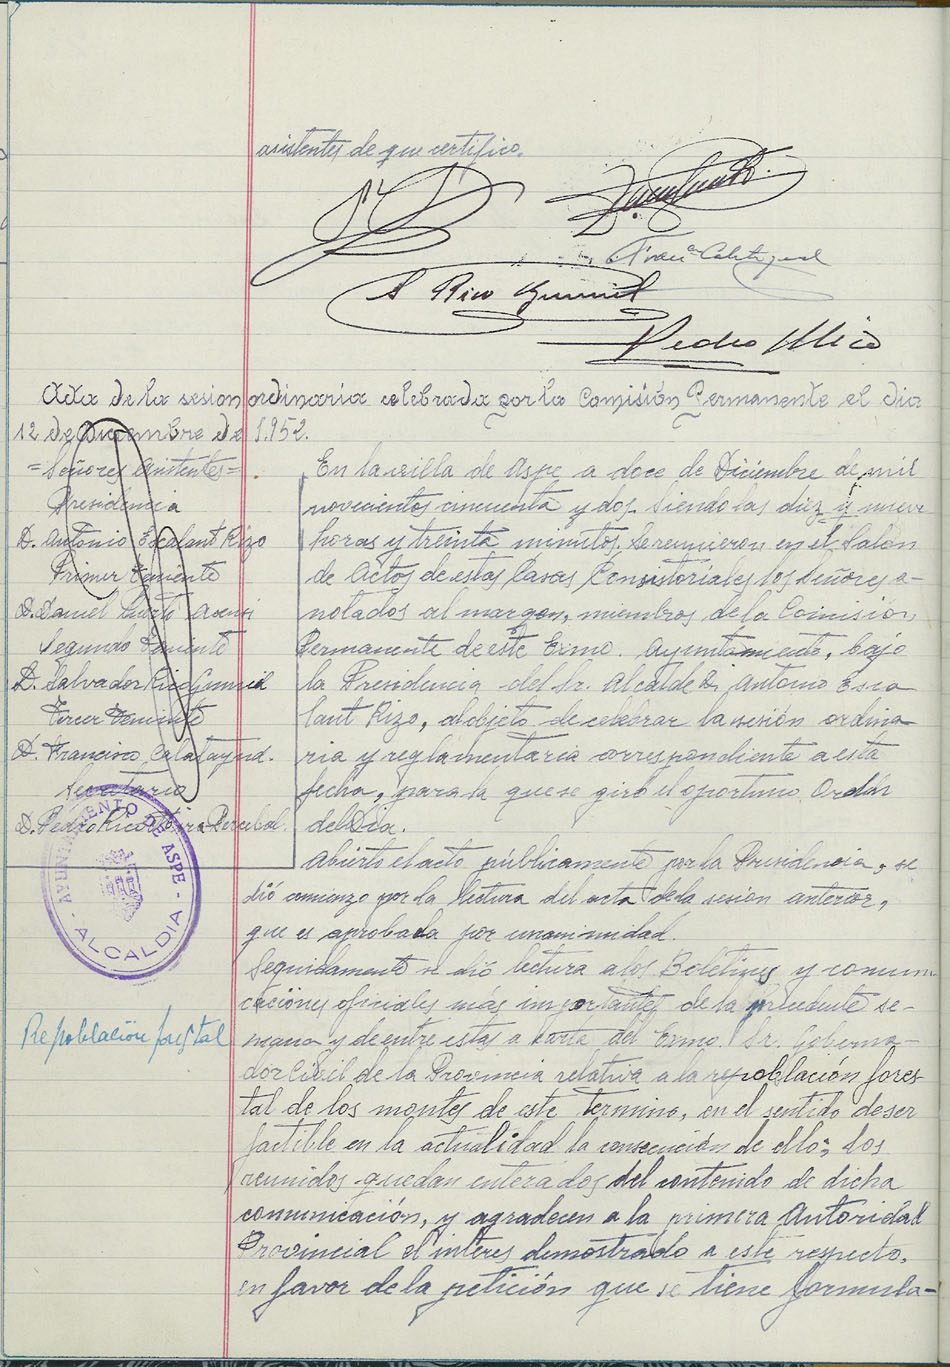 asistentes de que certifico.
A Rico Gumiel
Pedro Rico
Acta de la sesion ordinaria celebrada por la Comisión Permanente el dia
12 de Diciembre de 1.952.
=Señores Asistentes=
Presidencia
D. Antonio Escalant Rizo
Primer Teniente
D. Daniel Asensi
Segundo Teniente
D. Salvador Rico Gumiel
Tercer Teniente
D. Francisco Calatayud.
Secretario
D. Pedro Rico
AYUNTAMIENTO DE ASPE
- ALCALDIA -
En la villa de Aspe a doce de Diciembre de mil
novecientos cincuenta y dos. Siendo las diez y nueve
horas y treinta minutos. Se reunieron en el Salon
de Actos de estas Casas Consistoriales los Señores a-
notados al margen, miembros de la Comision
Permanente de este Exmo. Ayuntamiento, bajo
la Presidencia del Sr. Alcalde D. Antonio Esca
lant Rizo, al objeto de celebrar la sesión ordina-
ria y reglamentaria correspondiente a esta
fecha, para la que se giró el oportuno Orden
del Dia.
Abierto el acto públicamente por la Presidencia, se
dió comienzo por la lectura del acta de la sesion anterior,
que es aprobada por unanimidad.
Seguidamente se dió lectura a los Boletines y comuni
caciones oficiales más importantes de la precedente se-
mana y de entre estas a carta del Exmo. Sr. Goberna-
dor Civil de la Provincia relativa a la repoblación fores
tal de los montes de este termino, en el sentido de ser
factible en la actualidad la consecución de ello; los
reunidos quedan enterados del contenido de dicha
comunicación, y agradecen a la primera Autoridad
Provincial el interes demostrado a este respecto,
en favor de la petición que se tiene formula-
Repoblación forestal